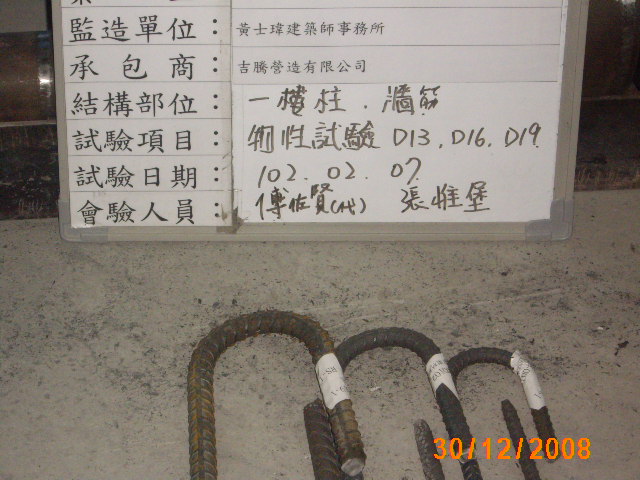 監造單位：黃士瑋建築師事務所
承包商：吉騰營造有限公司
結構部位：一樓柱．牆筋
試驗項目：物性試驗 D13. D16. D19
試驗日期：102. 02. 07
會驗人員：傅佐賢(代) 張惟堡
30/12/2008